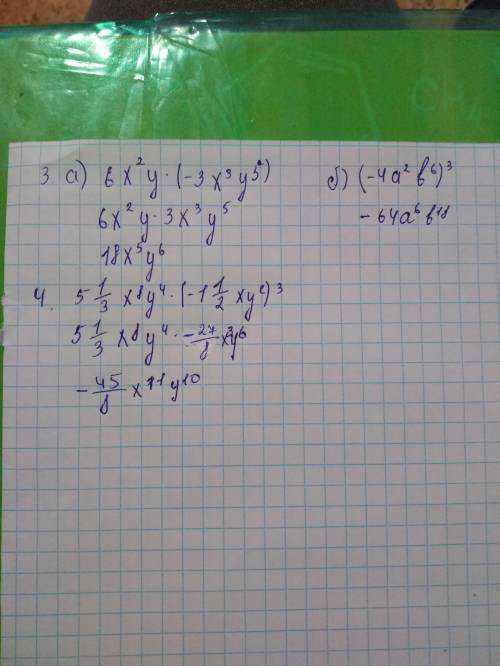 3 а) 6x²y · (-3x³y⁵)
6x²y · 3x³y⁵
18x⁵y⁶
б) (-4a²b⁶)³
-64a⁶b¹⁸
4. 5 1/3 x⁸y⁴ · (-1 1/2 xy²)³
5 1/3 x⁸y⁴ · -27/8 x³y⁶
-45/8 x¹¹y¹⁰
CH₄